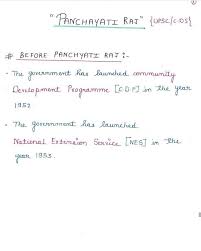 "PANCHAYATI RAJ" {UPSC/CDS}
# BEFORE PANCHYATI RAJ :-
• The government has launched community
Development Programme [C.D.P] in the year
1952
• The government has launched
National Extension Service [NES] in the
year 1953.